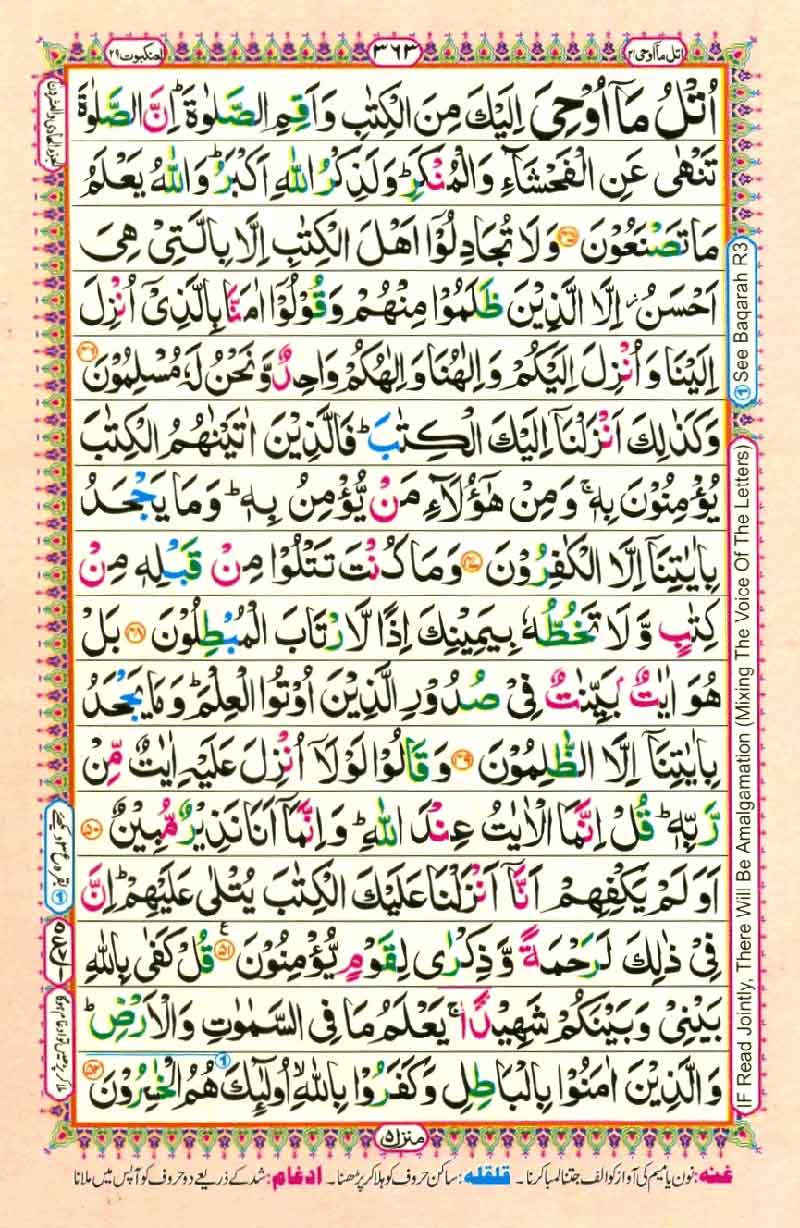 اتل مآ اوحی ۲۱
۳۶۳
العنکبوت ۲۹
اُتْلُ مَاۤ اُوْحِیَ اِلَیْكَ مِنَ الْكِتٰبِ وَ اَقِمِ الصَّلٰوةَؕ اِنَّ الصَّلٰوةَ
تَنْهٰى عَنِ الْفَحْشَآءِ وَ الْمُنْكَرِؕ وَ لَذِكْرُ اللّٰهِ اَكْبَرُؕ وَ اللّٰهُ یَعْلَمُ
مَا تَصْنَعُوْنَ ﴿۴۵﴾ وَ لَا تُجَادِلُوْۤا اَهْلَ الْكِتٰبِ اِلَّا بِالَّتِیْ هِیَ
اَحْسَنُ ۖۗ اِلَّا الَّذِیْنَ ظَلَمُوْا مِنْهُمْ وَ قُوْلُوْۤا اٰمَنَّا بِالَّذِیْۤ اُنْزِلَ
اِلَیْنَا وَ اُنْزِلَ اِلَیْكُمْ وَ اِلٰهُنَا وَ اِلٰهُكُمْ وَاحِدٌ وَّ نَحْنُ لَهٗ مُسْلِمُوْنَ ﴿۴۶﴾
وَ كَذٰلِكَ اَنْزَلْنَاۤ اِلَیْكَ الْكِتٰبَؕ فَالَّذِیْنَ اٰتَیْنٰهُمُ الْكِتٰبَ
یُؤْمِنُوْنَ بِهٖۚ وَ مِنْ هٰۤؤُلَآءِ مَنْ یُّؤْمِنُ بِهٖؕ وَ مَا یَجْحَدُ
بِاٰیٰتِنَاۤ اِلَّا الْكٰفِرُوْنَ ﴿۴۷﴾ وَ مَا كُنْتَ تَتْلُوْا مِنْ قَبْلِهٖ مِنْ
كِتٰبٍ وَّ لَا تَخُطُّهٗ بِیَمِیْنِكَ اِذًا لَّارْتَابَ الْمُبْطِلُوْنَ ﴿۴۸﴾ بَلْ
هُوَ اٰیٰتٌۢ بَیِّنٰتٌ فِیْ صُدُوْرِ الَّذِیْنَ اُوْتُوا الْعِلْمَؕ وَ مَا یَجْحَدُ
بِاٰیٰتِنَاۤ اِلَّا الظّٰلِمُوْنَ ﴿۴۹﴾ وَ قَالُوْا لَوْ لَاۤ اُنْزِلَ عَلَیْهِ اٰیٰتٌ مِّنْ
رَّبِّهٖؕ قُلْ اِنَّمَا الْاٰیٰتُ عِنْدَ اللّٰهِؕ وَ اِنَّمَاۤ اَنَا نَذِیْرٌ مُّبِیْنٌ ﴿۵۰﴾
اَوَ لَمْ یَكْفِهِمْ اَنَّاۤ اَنْزَلْنَا عَلَیْكَ الْكِتٰبَ یُتْلٰى عَلَیْهِمْؕ اِنَّ
فِیْ ذٰلِكَ لَرَحْمَةً وَّ ذِكْرٰى لِقَوْمٍ یُّؤْمِنُوْنَ ﴿۵۱﴾ قُلْ كَفٰى بِاللّٰهِ
بَیْنِیْ وَ بَیْنَكُمْ شَهِیْدًاۚ یَعْلَمُ مَا فِی السَّمٰوٰتِ وَ الْاَرْضِؕ
وَ الَّذِیْنَ اٰمَنُوْا بِالْبَاطِلِ وَ كَفَرُوْا بِاللّٰهِۙ اُولٰٓىِٕكَ هُمُ الْخٰسِرُوْنَ ﴿۵۲﴾
منزل ۵
غنہ: نون یا میم کی آواز کو الف جتنا لمبا کرنا۔ قلقلہ: ساکن حروف کو ہلا کر پڑھنا۔ ادغام: شد کے ذریعے دو حروف کو آپس میں ملانا
① See Baqarah R3
IF Read Jointly, There Will Be Amalgamation (Mixing The Voice Of The Letters)